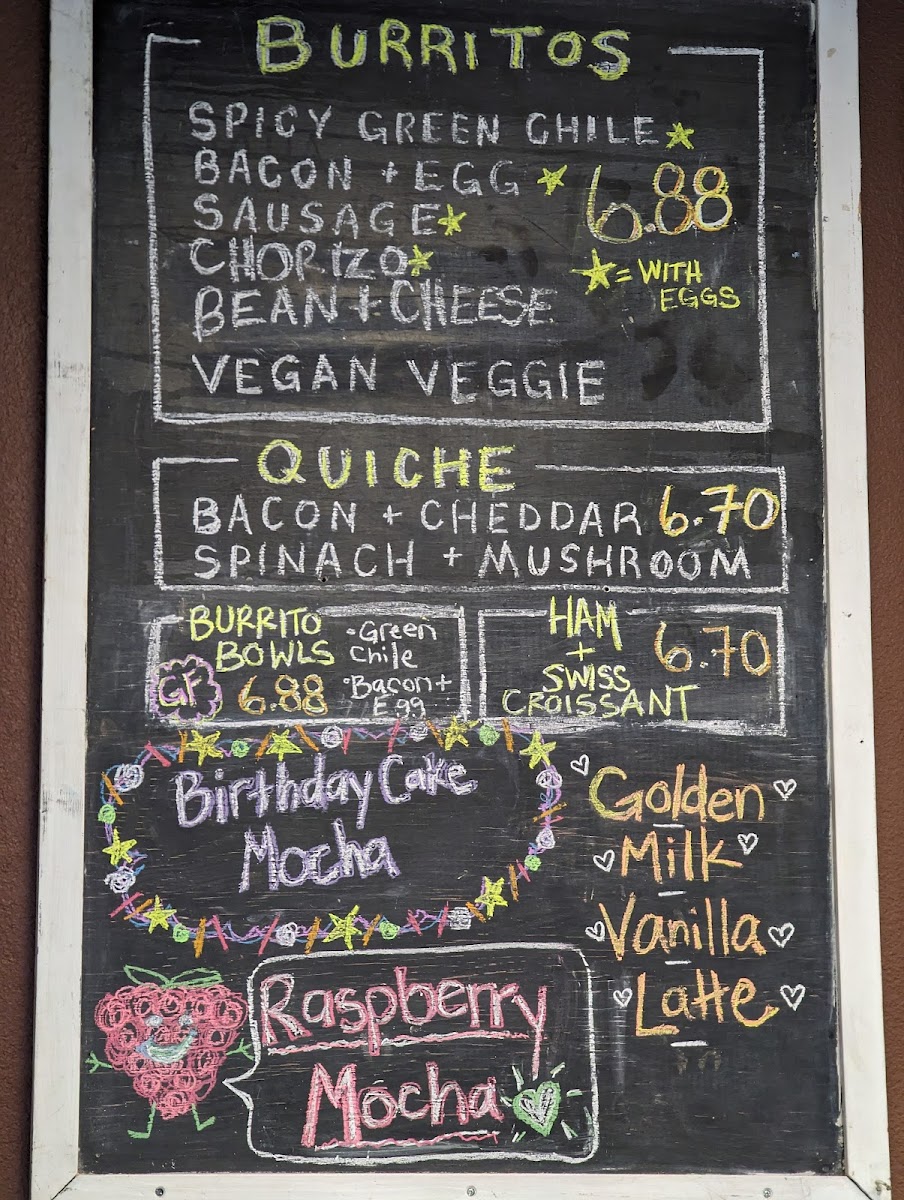 BURRITOS
SPICY GREEN CHILE★
BACON + EGG ★
SAUSAGE★
CHORIZO★
BEAN + CHEESE
VEGAN VEGGIE
6.88
★ = WITH
EGGS
QUICHE
BACON + CHEDDAR 6.70
SPINACH + MUSHROOM
BURRITO
BOWLS
GF 6.88
•Green
Chile
•Bacon +
Egg
HAM
+
SWISS
CROISSANT
6.70
Birthday Cake
Mocha
Golden
Milk
Vanilla
Latte
Raspberry
Mocha